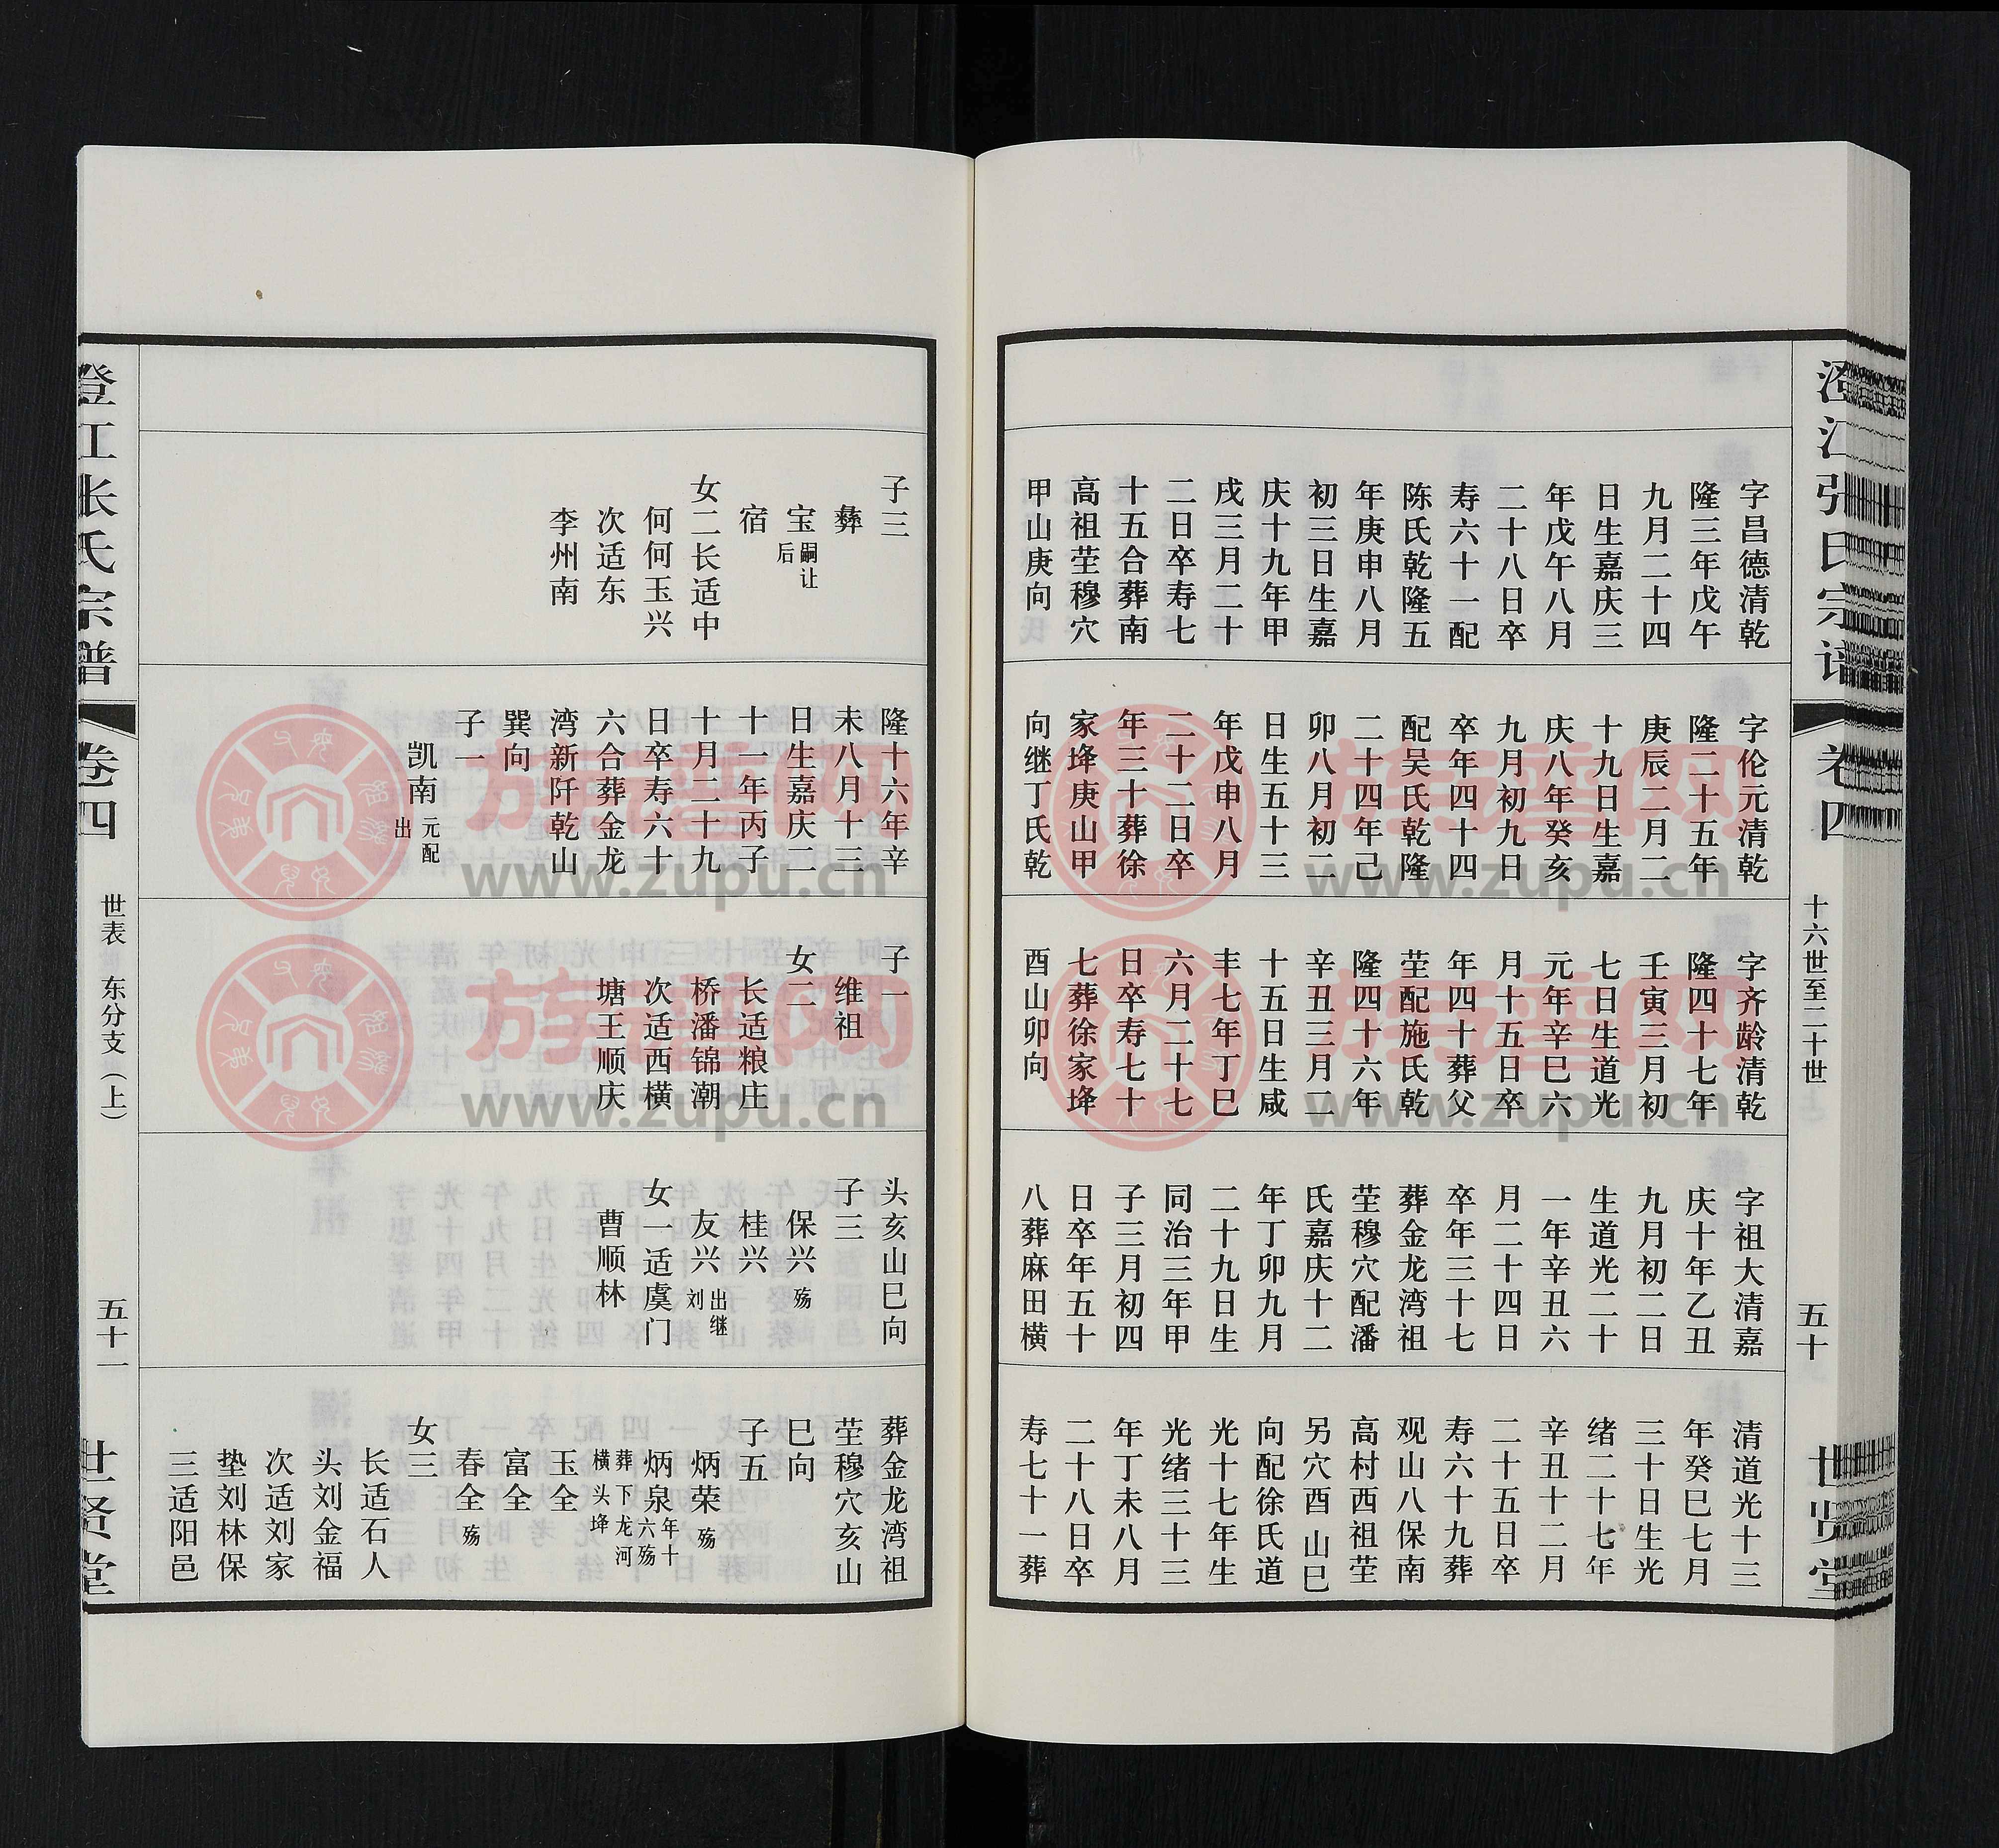 澄江张氏宗谱
卷四
十六世至二十世
五十
世贤堂
字昌德清乾
隆三年戊午
九月二十四
日生嘉庆三
年戊午八月
二十八日卒
寿六十一配
陈氏乾隆五
年庚申八月
初三日生嘉
庆十九年甲
戌三月二十
二日卒寿七
十五合葬南
高祖茔穆穴
甲山庚向
字伦元清乾
隆二十五年
庚辰二月二
十九日生嘉
庆八年癸亥
九月初九日
卒年四十四
配吴氏乾隆
二十四年己
卯八月初二
日生五十三
年戊申八月
二十二日卒
年三十葬徐
家埄庚山甲
向继丁氏乾
字齐龄清乾
隆四十七年
壬寅三月初
七日生道光
元年辛巳六
月十五日卒
年四十葬父
茔配施氏乾
隆四十六年
辛丑三月二
十五日生咸
丰七年丁巳
六月二十七
日卒寿七十
七葬徐家埄
酉山卯向
字祖大清嘉
庆十年乙丑
九月初二日
生道光二十
一年辛丑六
月二十四日
卒年三十七
葬金龙湾祖
茔穆穴配潘
氏嘉庆十二
年丁卯九月
二十九日生
同治三年甲
子三月初四
日卒年五十
八葬麻田横
清道光十三
年癸巳七月
三十日生光
绪二十七年
辛丑十二月
二十五日卒
寿六十九葬
观山八保南
高村西祖茔
另穴酉山巳
向配徐氏道
光十七年生
光绪三十三
年丁未八月
二十八日卒
寿七十一葬
子三
彝
宝 嗣让
后
宿
女二长适中
何何玉兴
次适东
李州南
隆十六年辛
未八月十三
日生嘉庆二
十一年丙子
十月二十九
日卒寿六十
六合葬金龙
湾新阡乾山
巽向
子一
凯南 元配
出
子一
维祖
女二
长适粮庄
桥潘锦潮
次适西横
塘王顺庆
头亥山巳向
子三
保兴 殇
桂兴
友兴 出继
刘
女一适虞门
曹顺林
葬金龙湾祖
茔穆穴亥山
巳向
子五
炳荣 殇
炳泉 年十
六殇
葬下龙河
横头埄
玉全
富全
春全 殇
女三
长适石人
头刘金福
次适刘家
垫刘林保
三适阳邑
澄江张氏宗谱
卷四
世表 东分支（上）
五十一
世贤堂
族谱网
www.zupu.cn
族谱网
www.zupu.cn
族谱网
www.zupu.cn
族谱网
www.zupu.cn